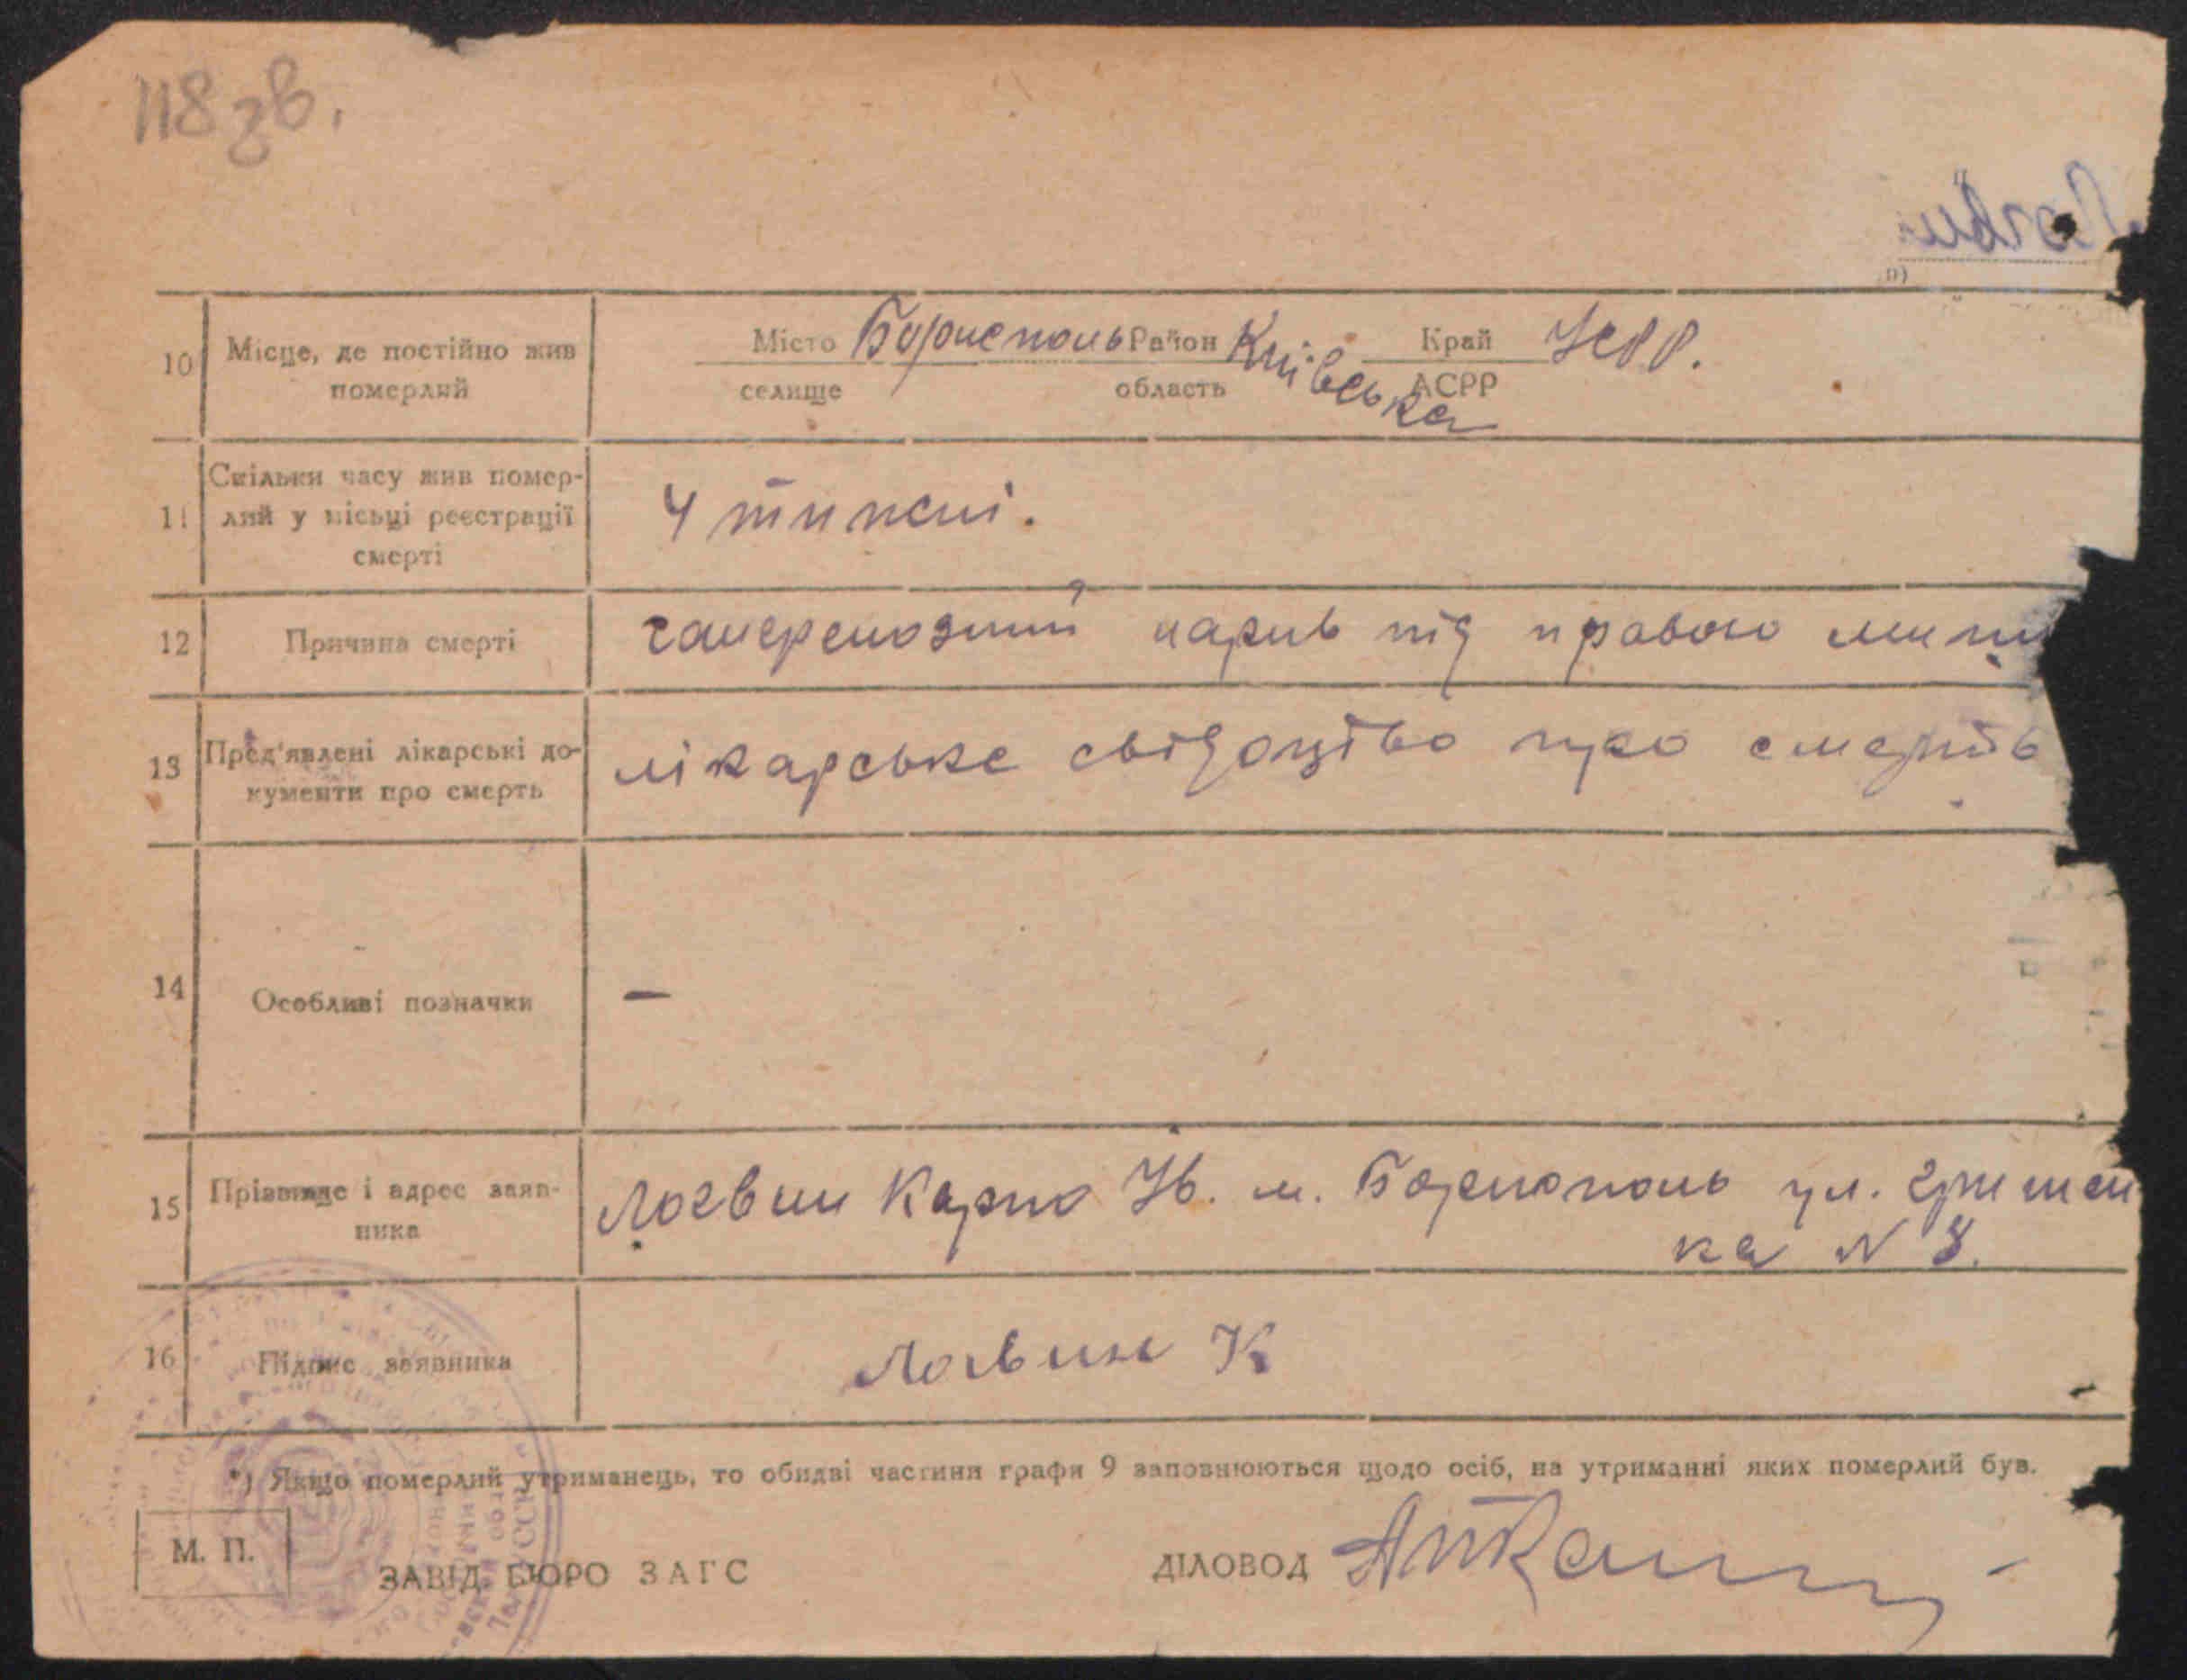 118 зв.
10 Місце, де постійно жив померлий
Місто Бориспіль Район Київська Край УСРР.
селище область АСРР
11 Скільки часу жив помер-
лий у місьці реєстрації
смерті
4 тижні.
12 Причина смерті
гангренозний нарив під правою
13 Пред'явлені лікарські до-
кументи про смерть
лікарське свідоцтво про смерть
14 Особливі позначки
—
15 Прізвище і адрес заяв-
ника
Логвин Карпо Ів. м. Борисполь ул. Гришен
ка N 8.
16 Підпис заявника
Логвин К
*) Якщо померлий утриманець, то обидві частини графи 9 заповнюються щодо осіб, на утриманні яких померлий був.
М. П.
ЗАВІД. БЮРО ЗАГС
ДІЛОВОД